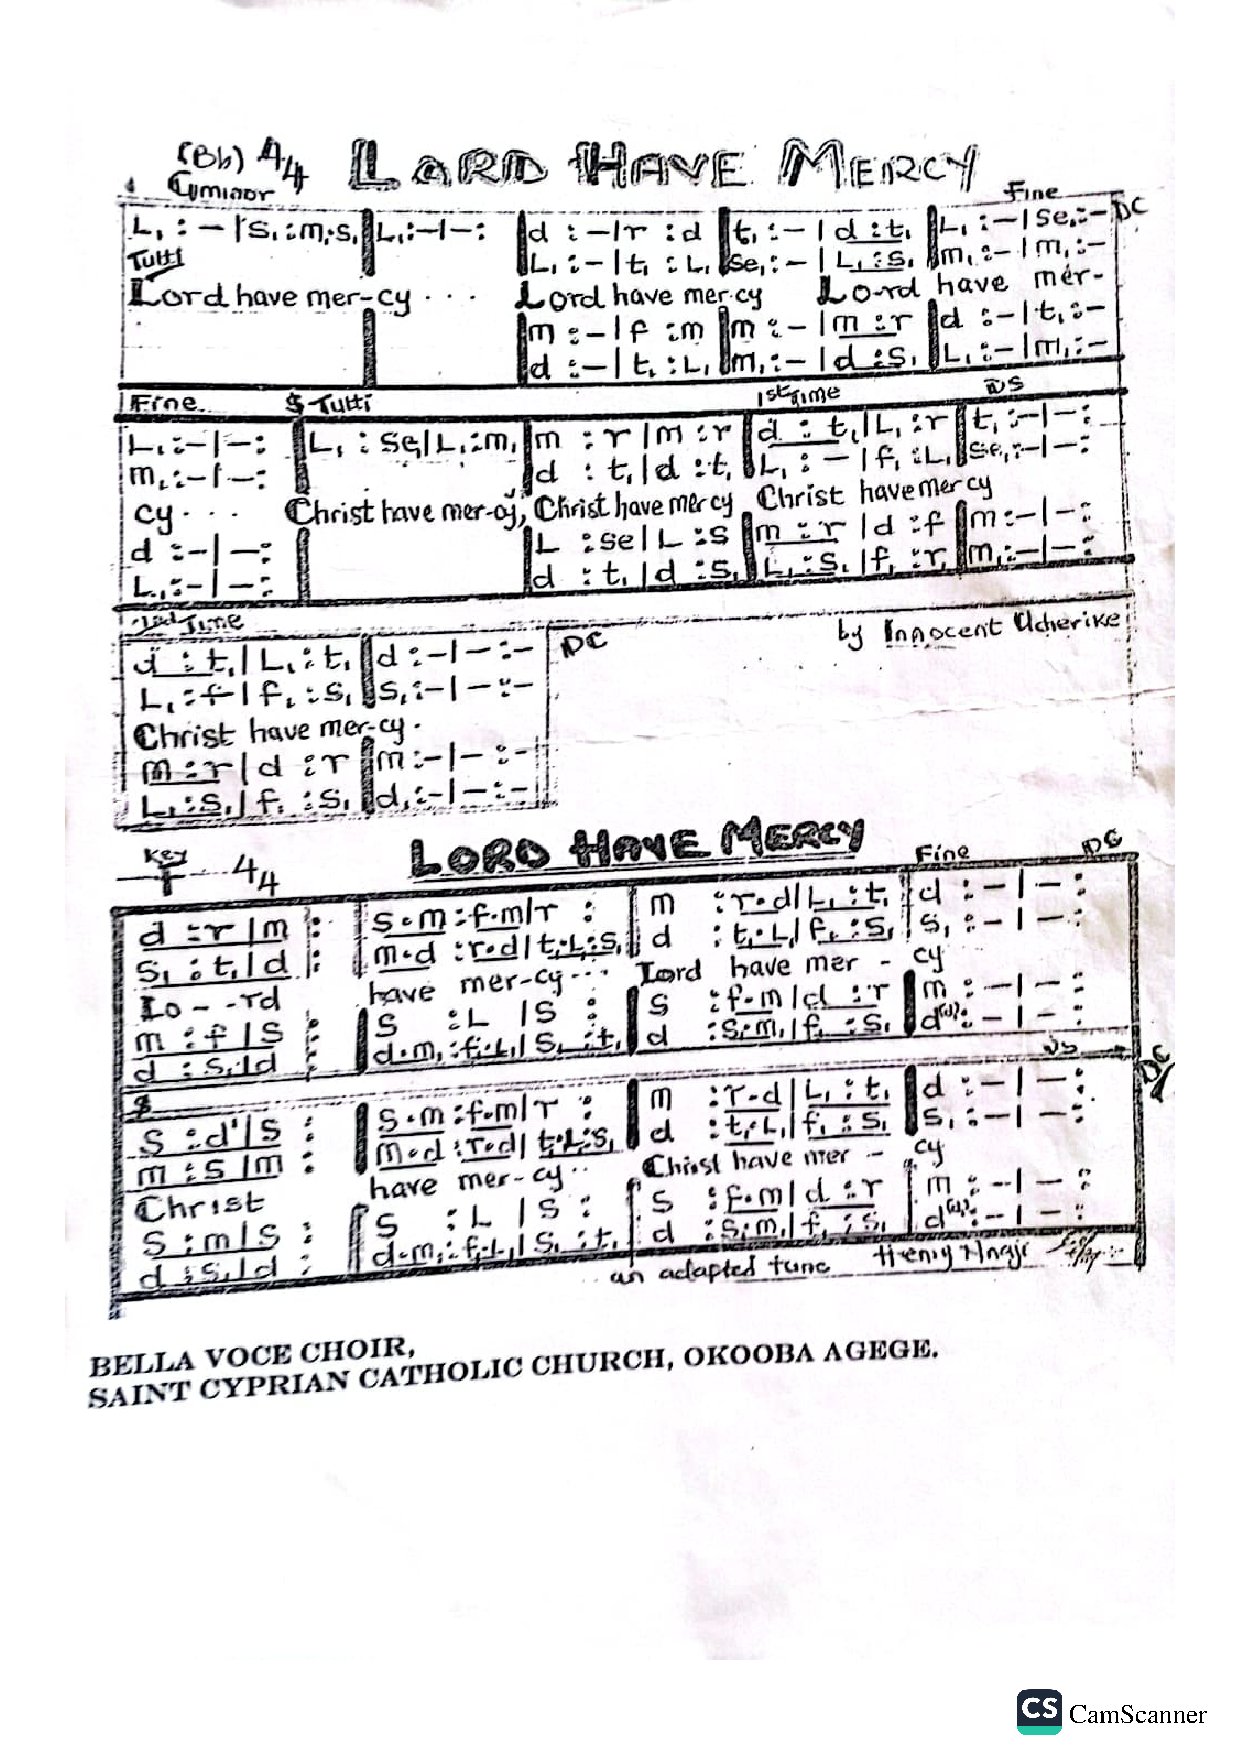 (Bb) 4/4 LORD HAVE MERCY
Cuminor Fine
L₁ : – | s₁ : m₁.s₁ | L₁ : – | – : | d : – | r : d | t₁ : – | d : t₁ | L₁ : – | se₁ : – DC
Tutti L₁ : – | t₁ : L₁ | se₁ : – | L₁ : s₁ | m₁ : – | m₁ : –
Lord have mer-cy . . . Lord have mercy Lo-rd have mer-
m : – | f : m | m : – | m : r | d : – | t₁ : –
d : – | t₁ : L₁ | m₁ : – | d : s₁ | L₁ : – | m₁ : –
Fine. $ Tutti 1st Time DS
L₁ : – | – : | L₁ : se₁ | L₁ : m₁ | m : r | m : r | d : t₁ | L₁ : r | t₁ : – | – :
m₁ : – | – : d : t₁ | d : t₁ | L₁ : – | f₁ : L₁ | se₁ : – | – :
cy . . . Christ have mer-cy, Christ have mercy Christ have mercy
d : – | – : L : se | L : s | m : r | d : f | m : – | – :
L₁ : – | – : d : t₁ | d : s₁ | L₁ : s₁ | f₁ : r₁ | m₁ : – | – :
Time
d : t₁ | L₁ : t₁ | d : – | – : – DC by Innocent Ucherike
L₁ : f | f₁ : s₁ | s₁ : – | – : –
Christ have mer-cy.
m : r | d : r | m : – | – : –
L₁ : s₁ | f₁ : s₁ | d₁ : – | – : –
Key F 4/4 LORD HAVE MERCY Fine DC
d : r | m : s.m : f.m | r : m : r.d | L₁ : t₁ | d : – | – :
s₁ : t₁ | d : m.d : r.d | t₁.L₁ : s₁ | d : t₁.L₁ | f₁ : s₁ | s₁ : – | – :
Lo - - rd have mer-cy . . . Lord have mer - cy
m : f | s : s : L | s : s : f.m | d : r | m : – | – :
d : s₁ | d : d.m₁ : f₁.L₁ | s₁ : t₁ | d : s₁.m₁ | f₁ : s₁ | d⁽¹⁾ : – | – :
$ DS DC
s : d' | s : s.m : f.m | r : m : r.d | L₁ : t₁ | d : – | – :
m : s | m : m.d : r.d | t₁.L₁ : s₁ | d : t₁.L₁ | f₁ : s₁ | s₁ : – | – :
Christ have mer-cy . . Christ have mer - cy
s : m | s : s : L | s : s : f.m | d : r | m : – | – :
d : s₁ | d : d.m₁ : f₁.L₁ | s₁ : t₁ | d : s₁.m₁ | f₁ : s₁ | d⁽¹⁾ : – | – :
an adapted tune Henry
BELLA VOCE CHOIR,
SAINT CYPRIAN CATHOLIC CHURCH, OKOOBA AGEGE.
CS CamScanner